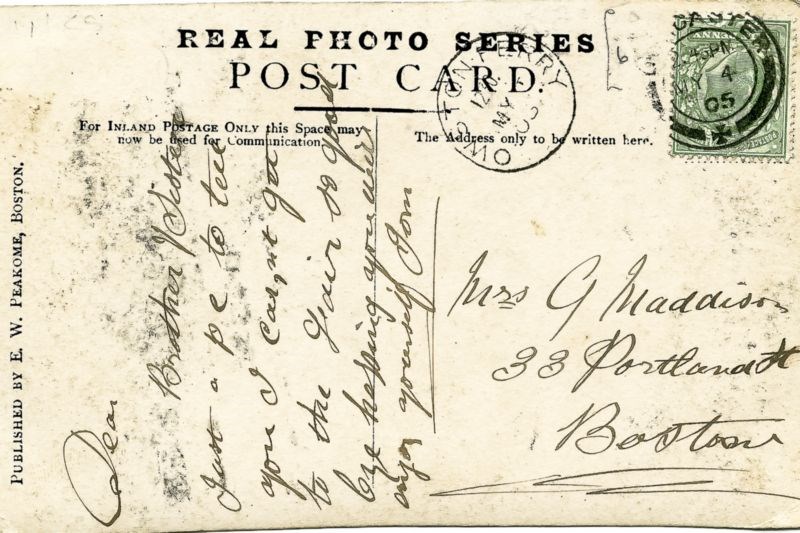 REAL PHOTO SERIES
POST CARD.
For Inland Postage Only this Space may
now be used for Communication.
The Address only to be written here.
Published by E. W. Peakome, Boston.
Dear
Brother & Sister
Just a pc to tell
you I carnt get
to the Fair so good
bye hoping you will
enjoy yourself Tom
Mrs G Maddison
33 Portland St
Boston
OWSTON FERRY
12
MY
05
MY 4
05